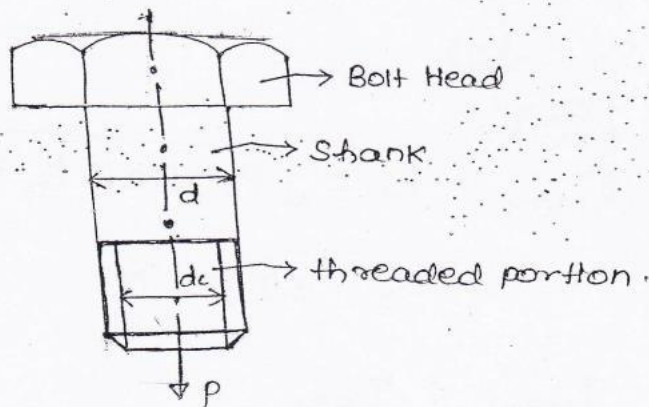 Bolt Head
Shank
d
threaded portion.
dc
P